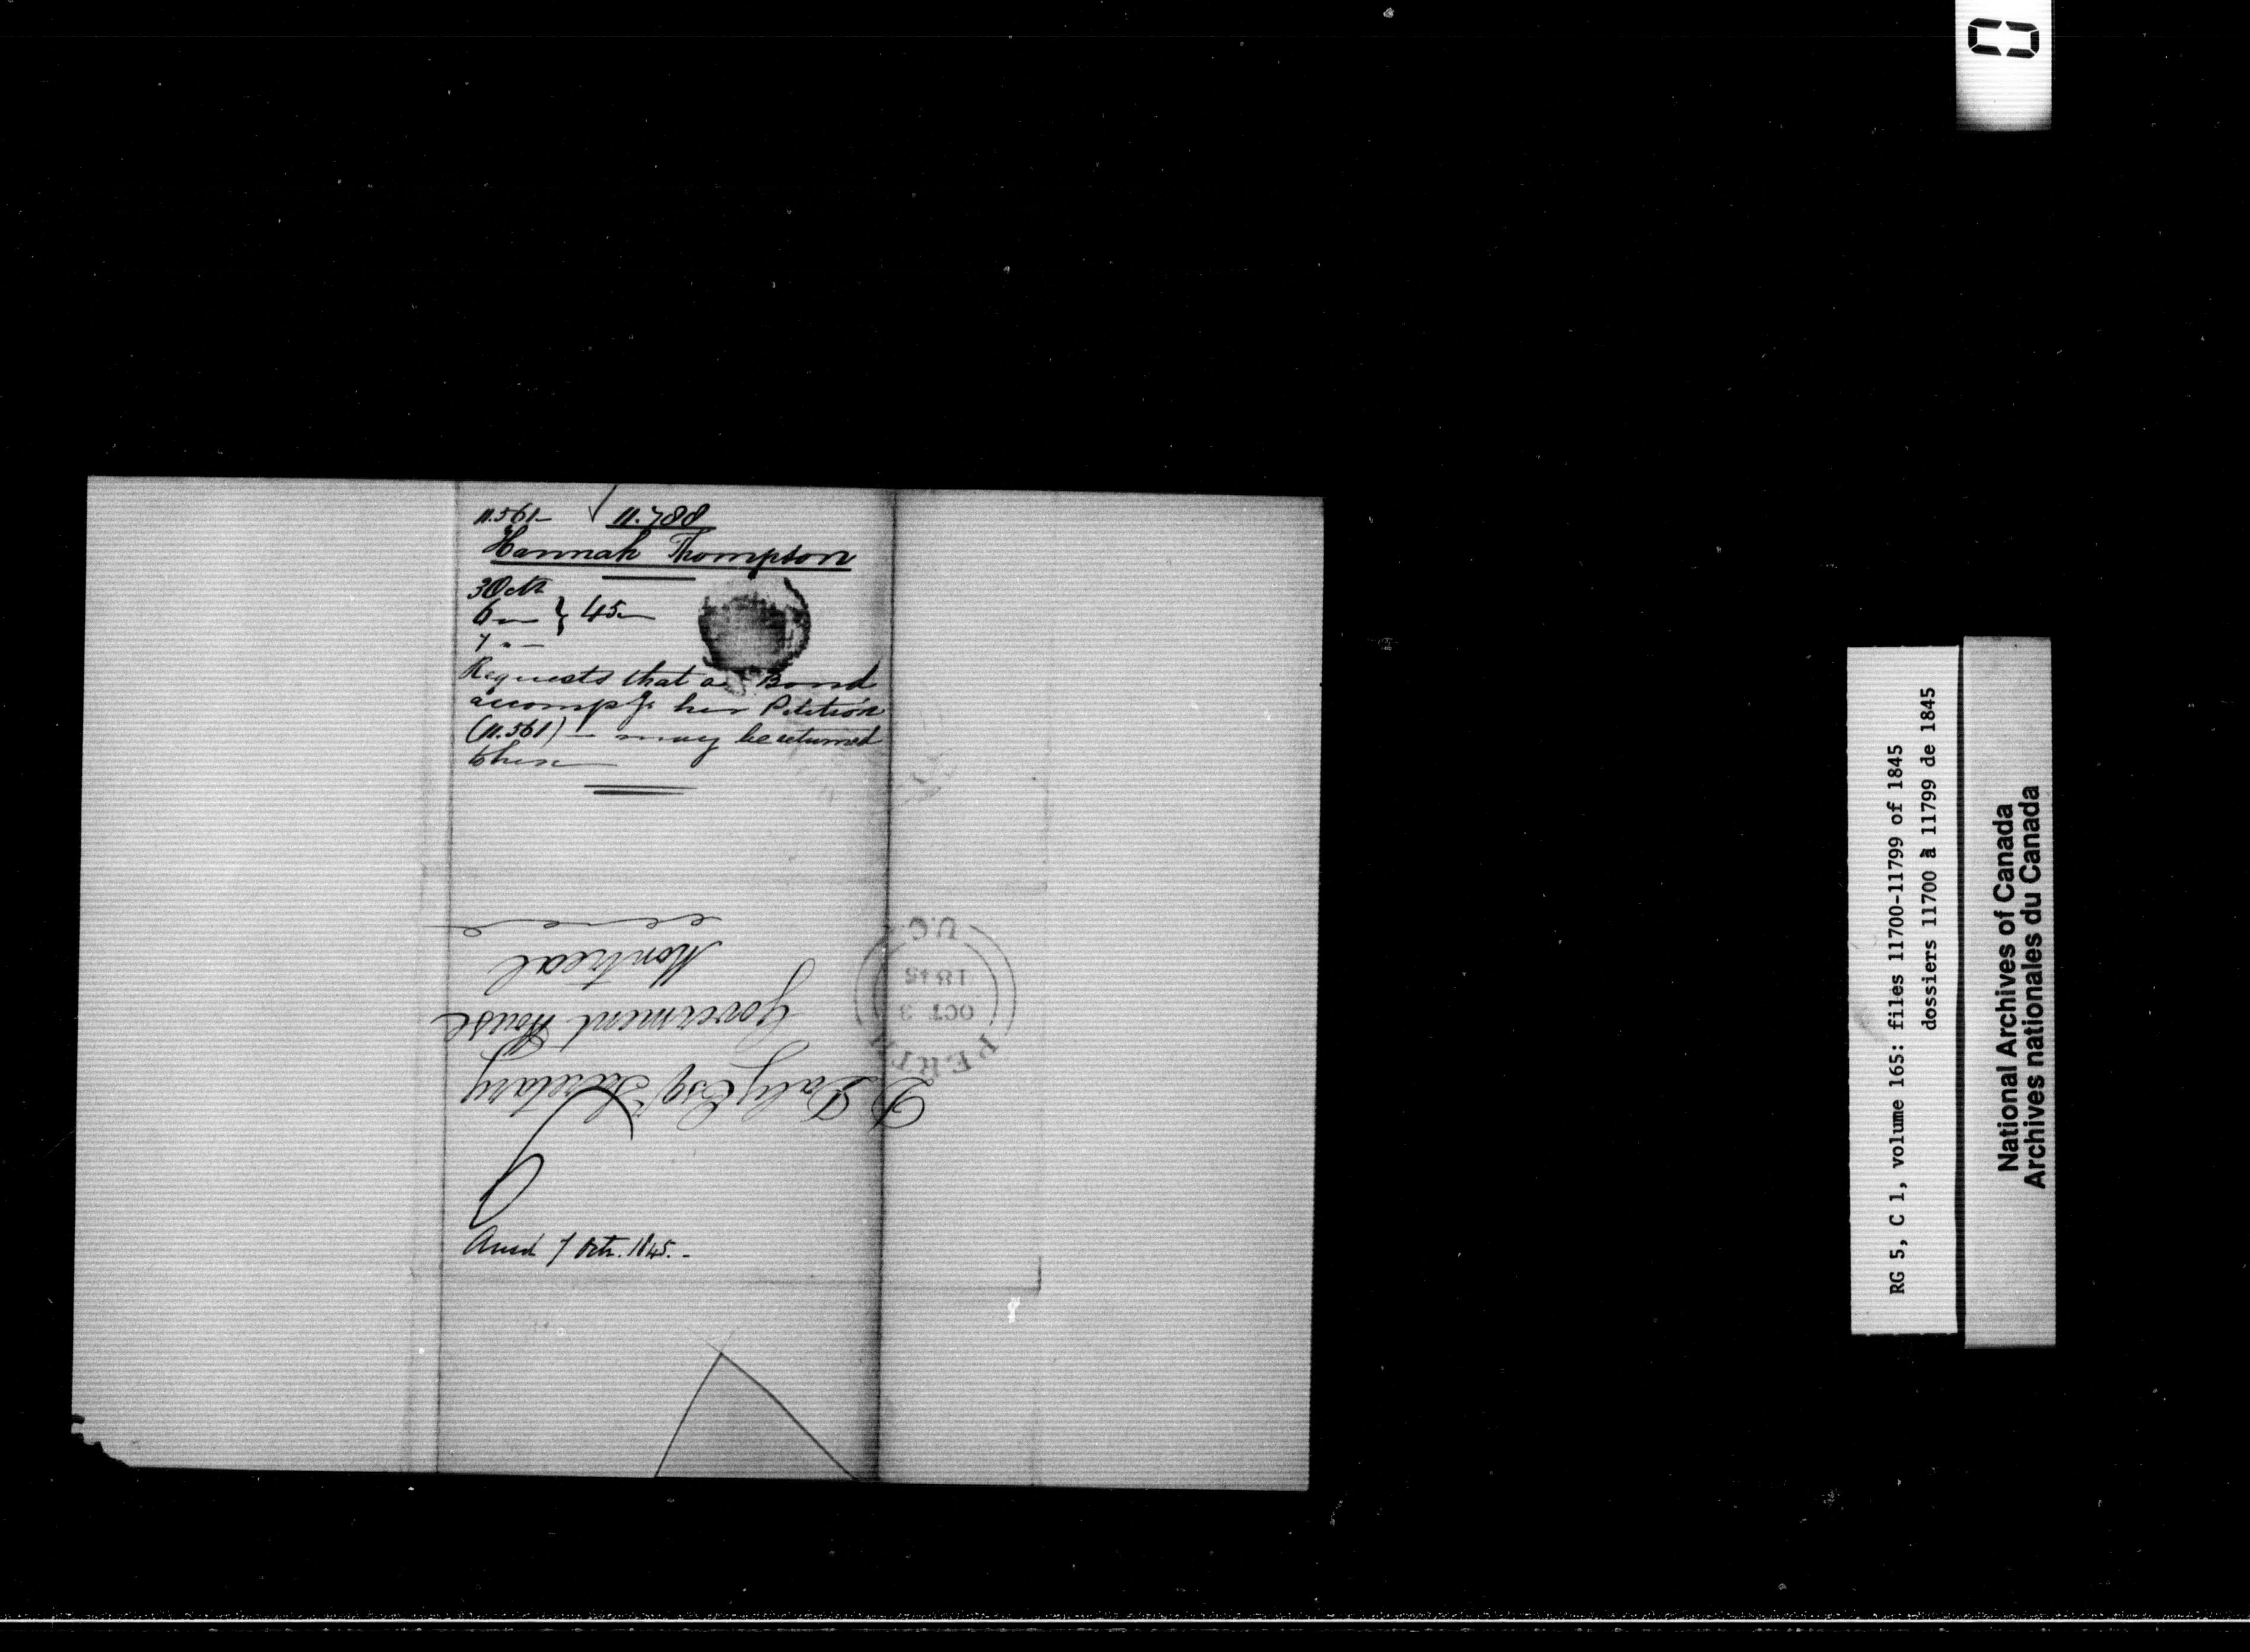 11.561- 11.788
Hannah Thompson
3 Octr
6 " — } 45 —
7 " —
Requests that a Bond
accompg. her Petition
(11.561) — may be returned
to her —
D. Daly Esqr Secretary
Goverment House
Montreal
PERTH
OCT 3
1845
U.C.
Ansd 7 Octr. 1845. -
RG 5, C 1, volume 165: files 11700-11799 of 1845
dossiers 11700 à 11799 de 1845
National Archives of Canada
Archives nationales du Canada